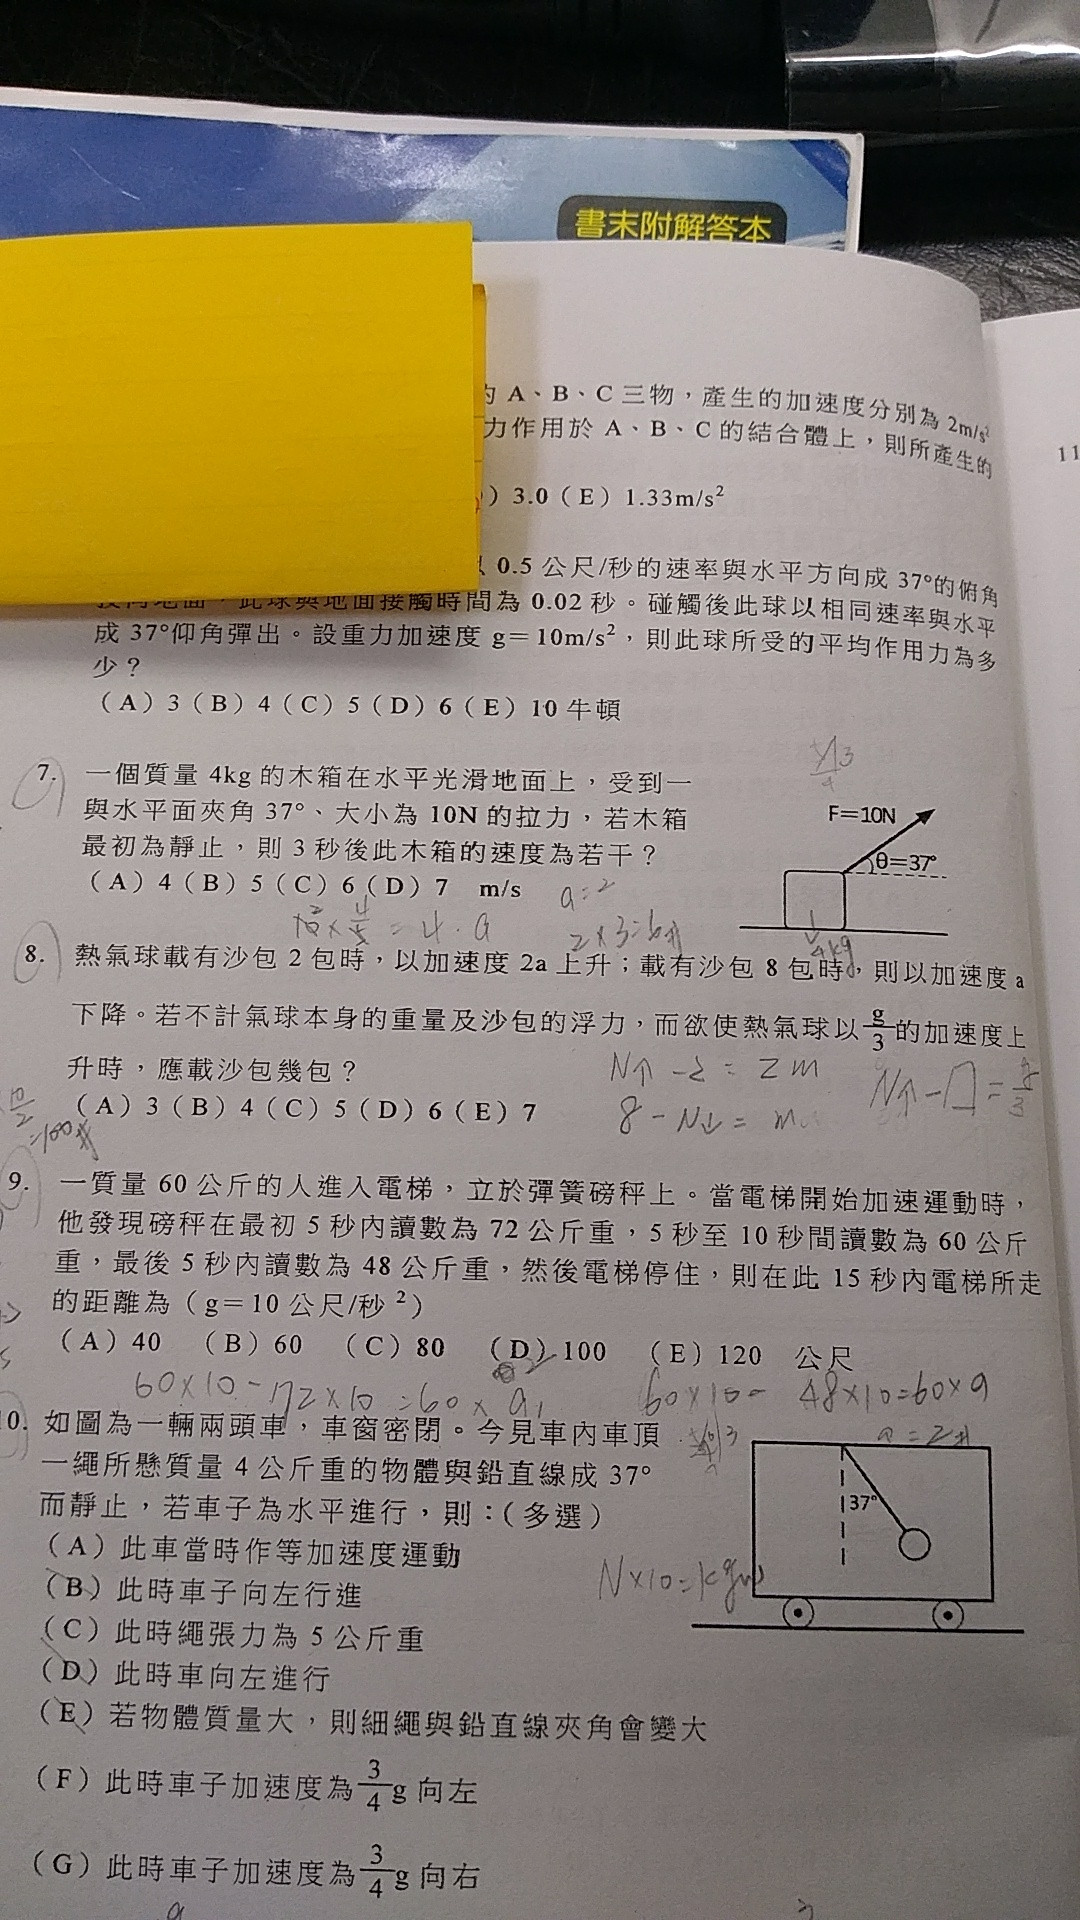 書末附解答本
A、B、C三物，產生的加速度分別為 2m/s²
力作用於 A、B、C的結合體上，則所產生的
11
) 3.0（E）1.33m/s²
0.5 公尺/秒的速率與水平方向成 37°的俯角
此球與地面接觸時間為 0.02 秒。碰觸後此球以相同速率與水平
成 37°仰角彈出。設重力加速度 g＝10m/s²，則此球所受的平均作用力為多
少？
（A）3（B）4（C）5（D）6（E）10 牛頓
7. 一個質量 4kg 的木箱在水平光滑地面上，受到一
與水平面夾角 37°、大小為 10N 的拉力，若木箱
最初為靜止，則 3 秒後此木箱的速度為若干？
（A）4（B）5（C）6（D）7 m/s
F=10N
θ=37°
a=2
4kg
8. 熱氣球載有沙包 2 包時，以加速度 2a 上升；載有沙包 8 包時，則以加速度 a
下降。若不計氣球本身的重量及沙包的浮力，而欲使熱氣球以 g/3 的加速度上
升時，應載沙包幾包？
（A）3（B）4（C）5（D）6（E）7
N↑ -2 = 2m
8 - N↓ = m
9. 一質量 60 公斤的人進入電梯，立於彈簧磅秤上。當電梯開始加速運動時，
他發現磅秤在最初 5 秒內讀數為 72 公斤重，5 秒至 10 秒間讀數為 60 公斤
重，最後 5 秒內讀數為 48 公斤重，然後電梯停住，則在此 15 秒內電梯所走
的距離為（g＝10 公尺/秒 ²）
（A）40 （B）60 （C）80 （D）100 （E）120 公尺
60×10-72×10=60×a₁
60×10-48×10=60×a
10. 如圖為一輛兩頭車，車窗密閉。今見車內車頂
一繩所懸質量 4 公斤重的物體與鉛直線成 37°
而靜止，若車子為水平進行，則：（多選）
（A）此車當時作等加速度運動
（B）此時車子向左行進
（C）此時繩張力為 5 公斤重
（D）此時車向左進行
（E）若物體質量大，則細繩與鉛直線夾角會變大
（F）此時車子加速度為 3/4 g 向左
（G）此時車子加速度為 3/4 g 向右
37°
N×10=kgw